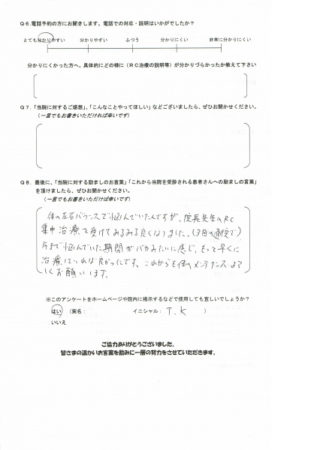 Q6.電話予約の方にお聞きします。電話での対応・説明はいかがでしたか?
とても分かりやすい 分かりやすい ふつう 分かりにくい 非常に分かりにくい
分かりにくかった方へ、具体的にどの様に(RC治療の説明等)が分かりづらかったか教えて下さい
Q7.「当院に対するご感想」、「こんなことやってほしい」などございましたら、ぜひお聞かせください。
(一言でもお書きいただければ幸いです)
Q8.最後に、「当院に対する励ましのお言葉」「これから当院を受診される患者さんへの励ましの言葉」
を頂けましたら、ぜひお聞かせください。
(一言でもお書きいただければ幸いです)
体の左右バランスで悩んでいたんですが、院長先生のRC
集中治療を受けてみるみる良くなりました。(3日の通院で)
今まで悩んでいた期間がバカみたいに感じ、もっと早くに
治療に
良かったです。これからも体のメンテナンスよろ
しくお願いします。
※このアンケートをホームページや院内に掲示するなどで使用しても宜しいでしょうか?
はい (実名: イニシャル: T.K )
いいえ
ご協力ありがとうございました。
皆さまの温かいお言葉を励みに一層の努力をさせていただきます。